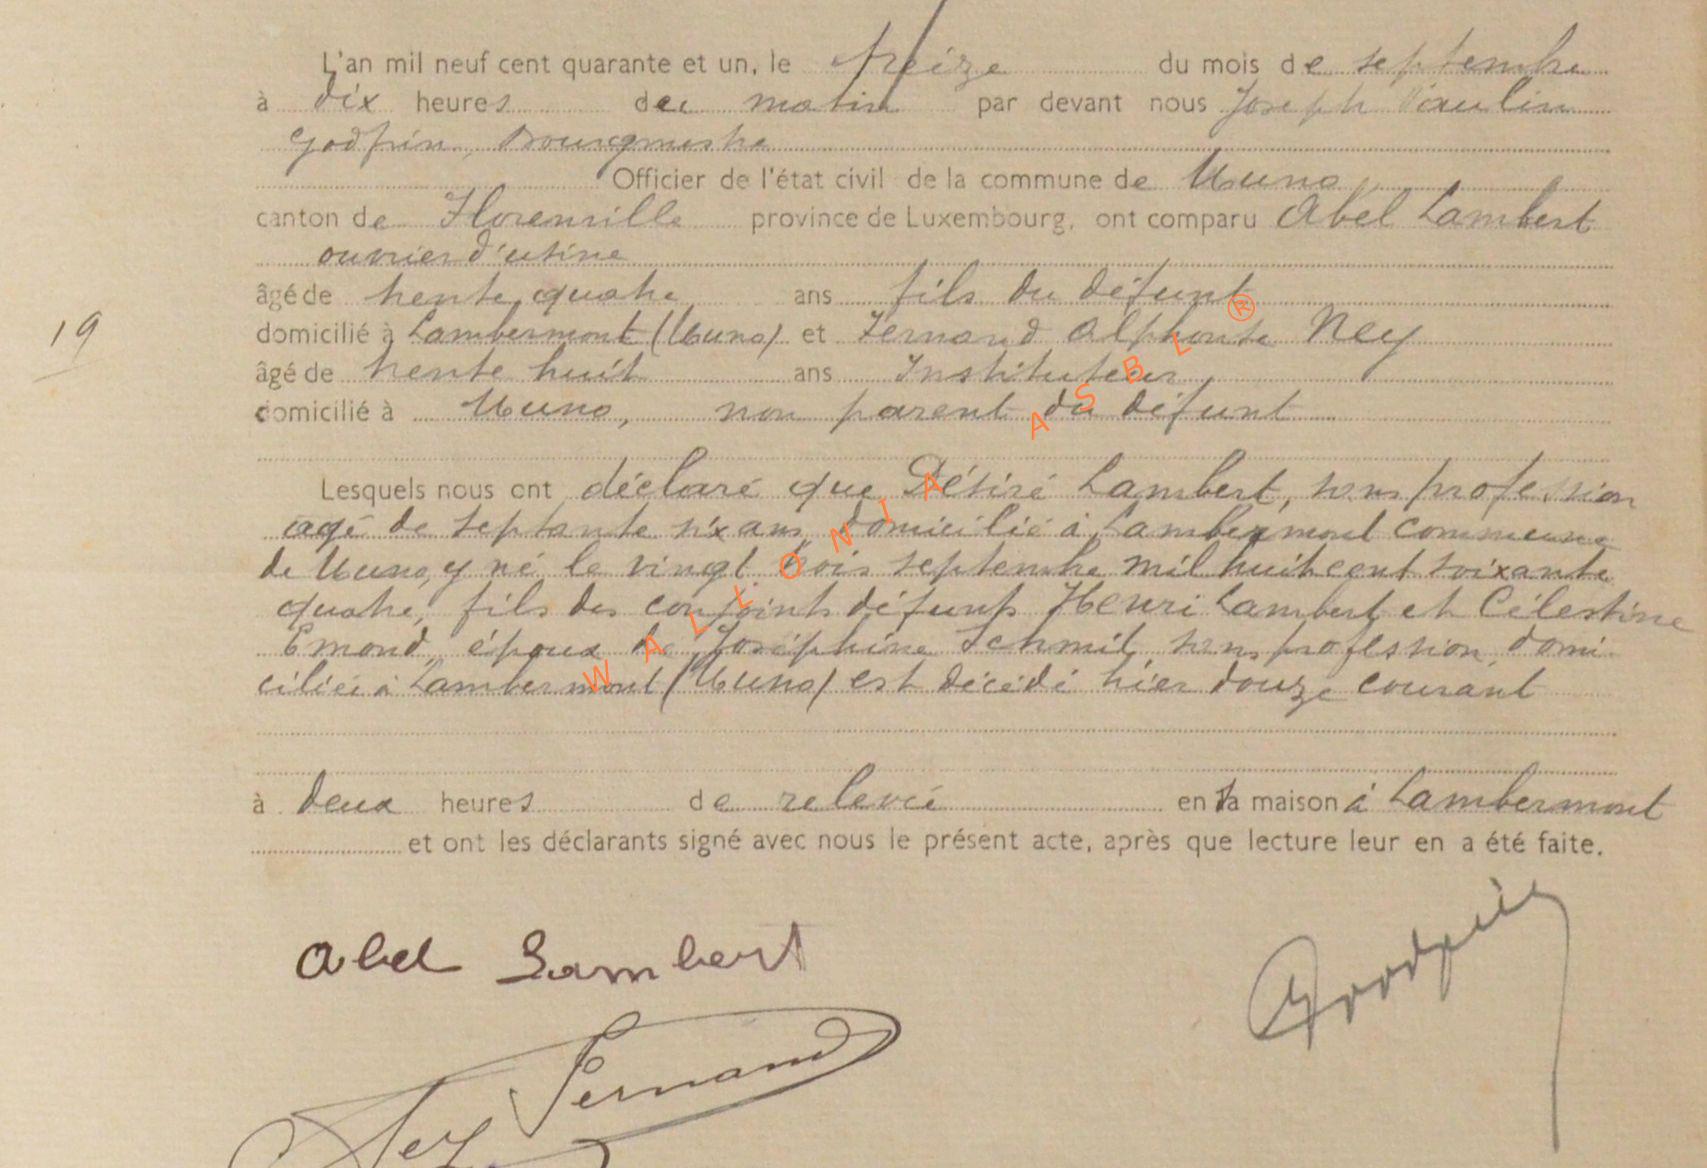 L'an mil neuf cent quarante et un, le treize du mois de septembre
à dix heures du matin par devant nous Joseph Paulin
Godfrin, Bourgmestre
Officier de l'état civil de la commune de Muno
canton de Florenville province de Luxembourg, ont comparu Abel Lambert
ouvrier d'usine
âgé de trente quatre ans fils du défunt
domicilié à Lambermont (Muno) et Fernand Alphonse Ney
19
âgé de trente huit ans Instituteur
domicilié à Muno, non parent du défunt
Lesquels nous ont déclaré que Désiré Lambert, sans profession
agé de septante six ans, domicilié à Lambermont commune
de Muno, y né le vingt trois septembre mil huit cent soixante
quatre, fils des conjoints défunts Henri Lambert et Célestine
Emond, époux de Joséphine Schmit, sans profession, domi-
ciliée à Lambermont (Muno) est décédé hier douze courant
à deux heures de relevée en sa maison à Lambermont
et ont les déclarants signé avec nous le présent acte, après que lecture leur en a été faite.
WALLONIA ASBL ®
Abel Lambert
Godfrin
Ney Fernand